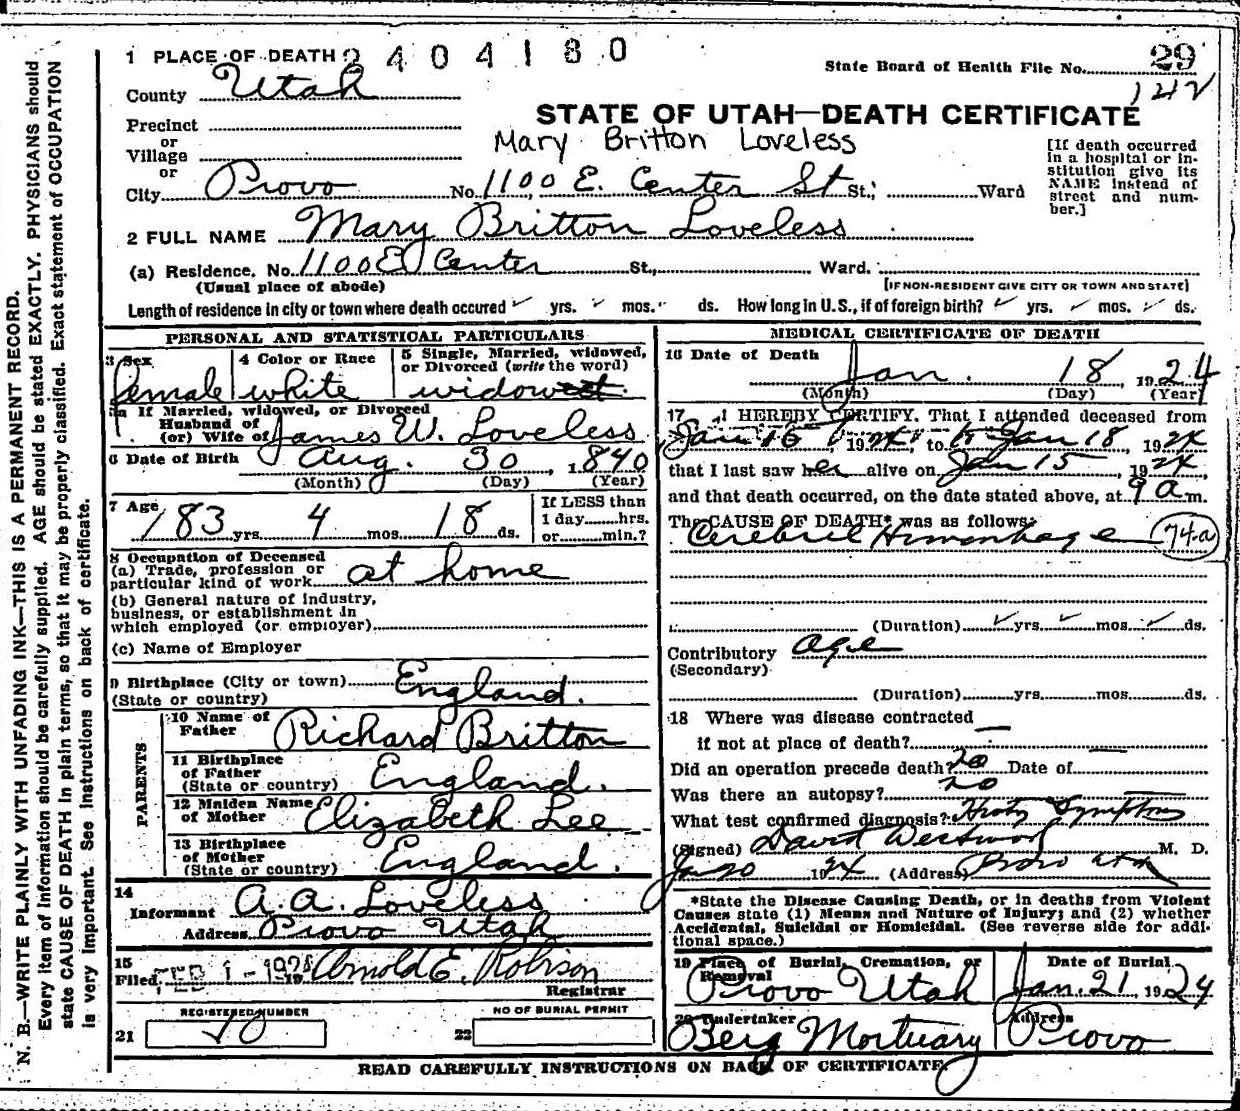 1 PLACE OF DEATH 2404180
State Board of Health File No. 29
142
County Utah
STATE OF UTAH—DEATH CERTIFICATE
Precinct
Mary Britton Loveless
or
Village
or
City Provo No. 1100 E. Center St St.; Ward
[If death occurred
in a hospital or in-
stitution give its
NAME instead of
street and num-
ber.]
2 FULL NAME Mary Britton Loveless
(a) Residence. No. 1100 E Center St., Ward.
(Usual place of abode) [IF NON-RESIDENT GIVE CITY OR TOWN AND STATE]
Length of residence in city or town where death occured yrs. mos. ds. How long in U.S., if of foreign birth? yrs. mos. ds.
PERSONAL AND STATISTICAL PARTICULARS
3 Sex
female
4 Color or Race
white
5 Single, Married, widowed,
or Divorced (write the word)
widow
If Married, widowed, or Divorced
Husband of
(or) Wife of James W. Loveless
6 Date of Birth Aug. 30, 1840
(Month) (Day) (Year)
7 Age 83 yrs. 4 mos. 18 ds.
If LESS than
1 day hrs.
or min.?
8 Occupation of Deceased
(a) Trade, profession or
particular kind of work at home
(b) General nature of industry,
business, or establishment in
which employed (or employer)
(c) Name of Employer
9 Birthplace (City or town) England.
(State or country)
PARENTS
10 Name of
Father Richard Britton
11 Birthplace
of Father
(State or country) England.
12 Maiden Name
of Mother Elizabeth Lee
13 Birthplace
of Mother
(State or country) England.
14
Informant A. A. Loveless
Address Provo Utah
15
Filed FEB 1 - 192 19 Arnold E. Robison
Registrar
REGISTERED NUMBER
21 10
NO OF BURIAL PERMIT
22
MEDICAL CERTIFICATE OF DEATH
16 Date of Death
Jan. 18, 1924
(Month) (Day) (Year)
17 I HEREBY CERTIFY. That I attended deceased from
Jan 16 1924, to Jan 18 1924
that I last saw her alive on Jan 15, 1924
and that death occurred, on the date stated above, at 9 a m.
The CAUSE OF DEATH* was as follows:
Cerebril Hemorrhage 74-a
(Duration) yrs. mos. ds.
Contributory age
(Secondary)
(Duration) yrs. mos. ds.
18 Where was disease contracted
if not at place of death?
Did an operation precede death? no Date of
Was there an autopsy? no
What test confirmed diagnosis? Symptoms
(Signed) David Westwood M. D.
Jan 20 1924 (Address) Provo Utah
*State the Disease Causing Death, or in deaths from Violent
Causes state (1) Means and Nature of Injury; and (2) whether
Accidental, Suicidal or Homicidal. (See reverse side for addi-
tional space.)
19 Place of Burial, Cremation, or
Removal
Provo Utah
Date of Burial
Jan. 21, 1924
20 Undertaker
Berg Mortuary
Address
Provo
READ CAREFULLY INSTRUCTIONS ON BACK OF CERTIFICATE.
N. B.—WRITE PLAINLY WITH UNFADING INK—THIS IS A PERMANENT RECORD.
Every item of information should be carefully supplied. AGE should be stated EXACTLY. PHYSICIANS should
state CAUSE OF DEATH in plain terms, so that it may be properly classified. Exact statement of OCCUPATION
is very important. See instructions on back of certificate.